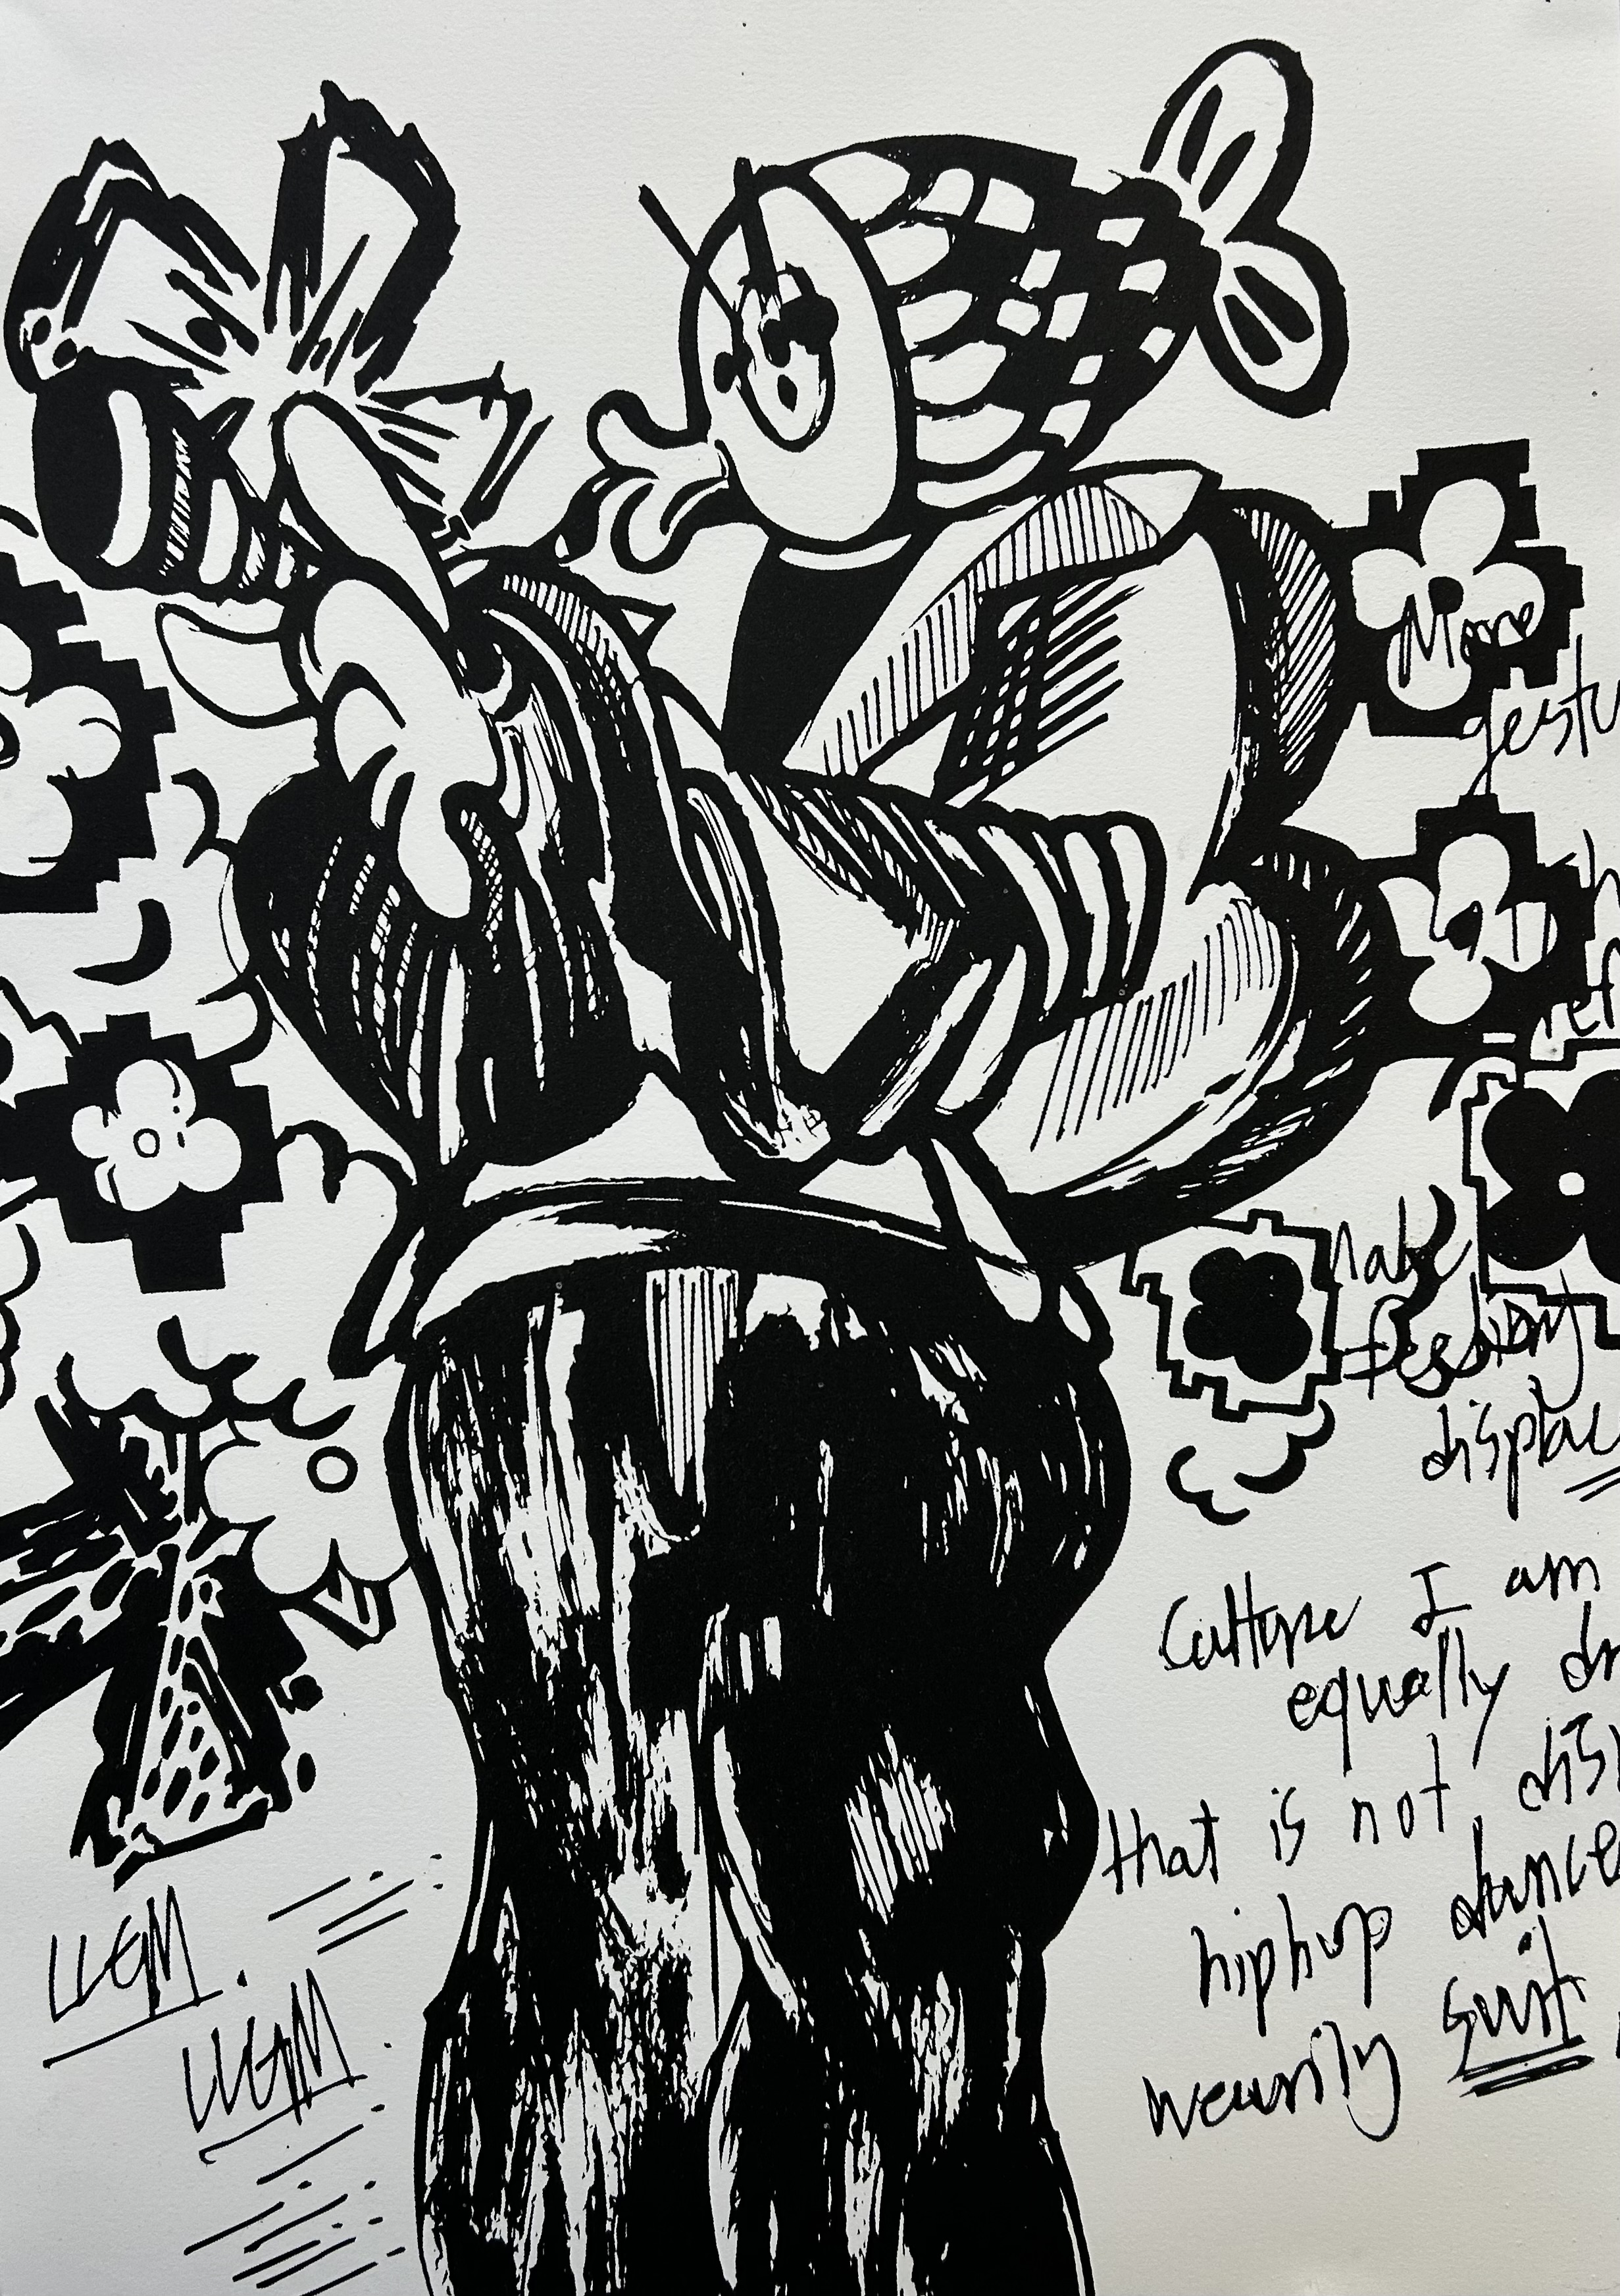 More
gestu
h
ref
make
displac
Culture I am
equally dr
that is not dis
hiphop dance
wearily suit
LLGM.
LLGM.